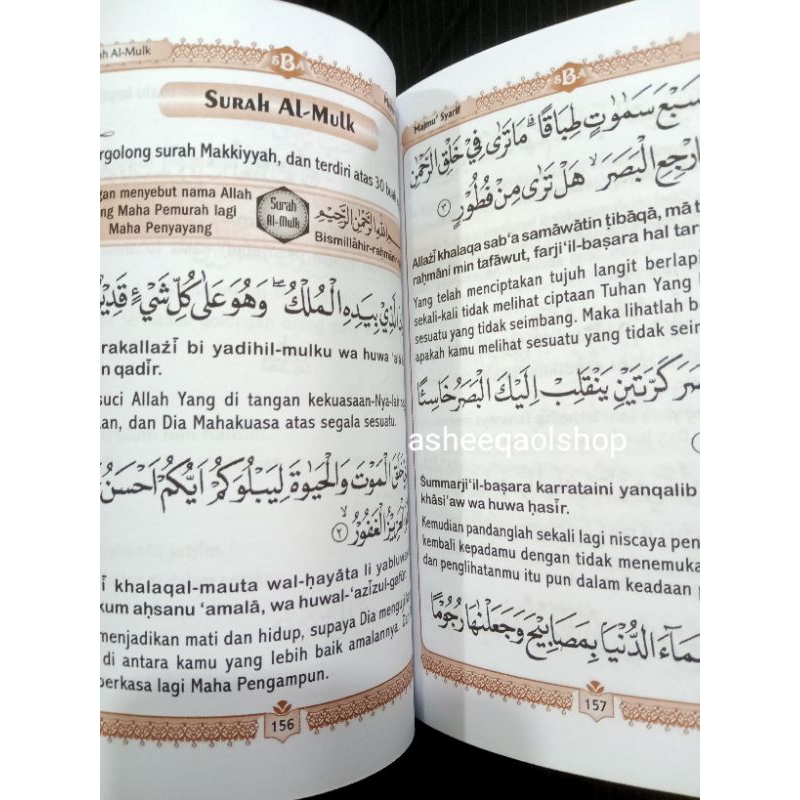 ah Al-Mulk
SBA
SURAH AL-MULK
rgolong surah Makkiyyah, dan terdiri atas 30 buah
gan menyebut nama Allah
ng Maha Pemurah lagi
Maha Penyayang
Surah
Al-Mulk
اللهِ الرَّحْمٰنِ الرَّحِيْمِ
Bismillāhir-raḥmānir-
الَّذِيْ بِيَدِهِ الْمُلْكُ ۖ وَهُوَ عَلٰى كُلِّ شَيْءٍ قَدِيْ
rakallażī bi yadihil-mulku wa huwa 'alā
n qadīr.
suci Allah Yang di tangan kekuasaan-Nya-lah
an, dan Dia Mahakuasa atas segala sesuatu.
خَلَقَ الْمَوْتَ وَالْحَيٰوةَ لِيَبْلُوَكُمْ اَيُّكُمْ اَحْسَنُ
الْعَزِيْزُ الْغَفُوْرُ ٢
ī khalaqal-mauta wal-ḥayāta li yabluwa
kum aḥsanu 'amalā, wa huwal-'azīzul-gafūr.
menjadikan mati dan hidup, supaya Dia menguji
di antara kamu yang lebih baik amalannya. Da
perkasa lagi Maha Pengampun.
156
SBA
Majmu' Syarif
سَبْعَ سَمٰوٰتٍ طِبَاقًا ۗ مَا تَرٰى فِيْ خَلْقِ الرَّحْمٰنِ
ارْجِعِ الْبَصَرَ ۙ هَلْ تَرٰى مِنْ فُطُوْرٍ ٣
Allażī khalaqa sab'a samāwātin ṭibāqā, mā t
raḥmāni min tafāwut, farji'il-baṣara hal tar
Yang telah menciptakan tujuh langit berlapi
sekali-kali tidak melihat ciptaan Tuhan Yang
sesuatu yang tidak seimbang. Maka lihatlah b
apakah kamu melihat sesuatu yang tidak seim
صَرَ كَرَّتَيْنِ يَنْقَلِبْ اِلَيْكَ الْبَصَرُ خَاسِئًا
asheeqaolshop
Ṡummarji'il-baṣara karrataini yanqalib
khāsi'aw wa huwa ḥasīr.
Kemudian pandanglah sekali lagi niscaya pen
kembali kepadamu dengan tidak menemuka
dan penglihatanmu itu pun dalam keadaan p
مَاۤءَ الدُّنْيَا بِمَصَابِيْحَ وَجَعَلْنٰهَا رُجُوْمًا
157